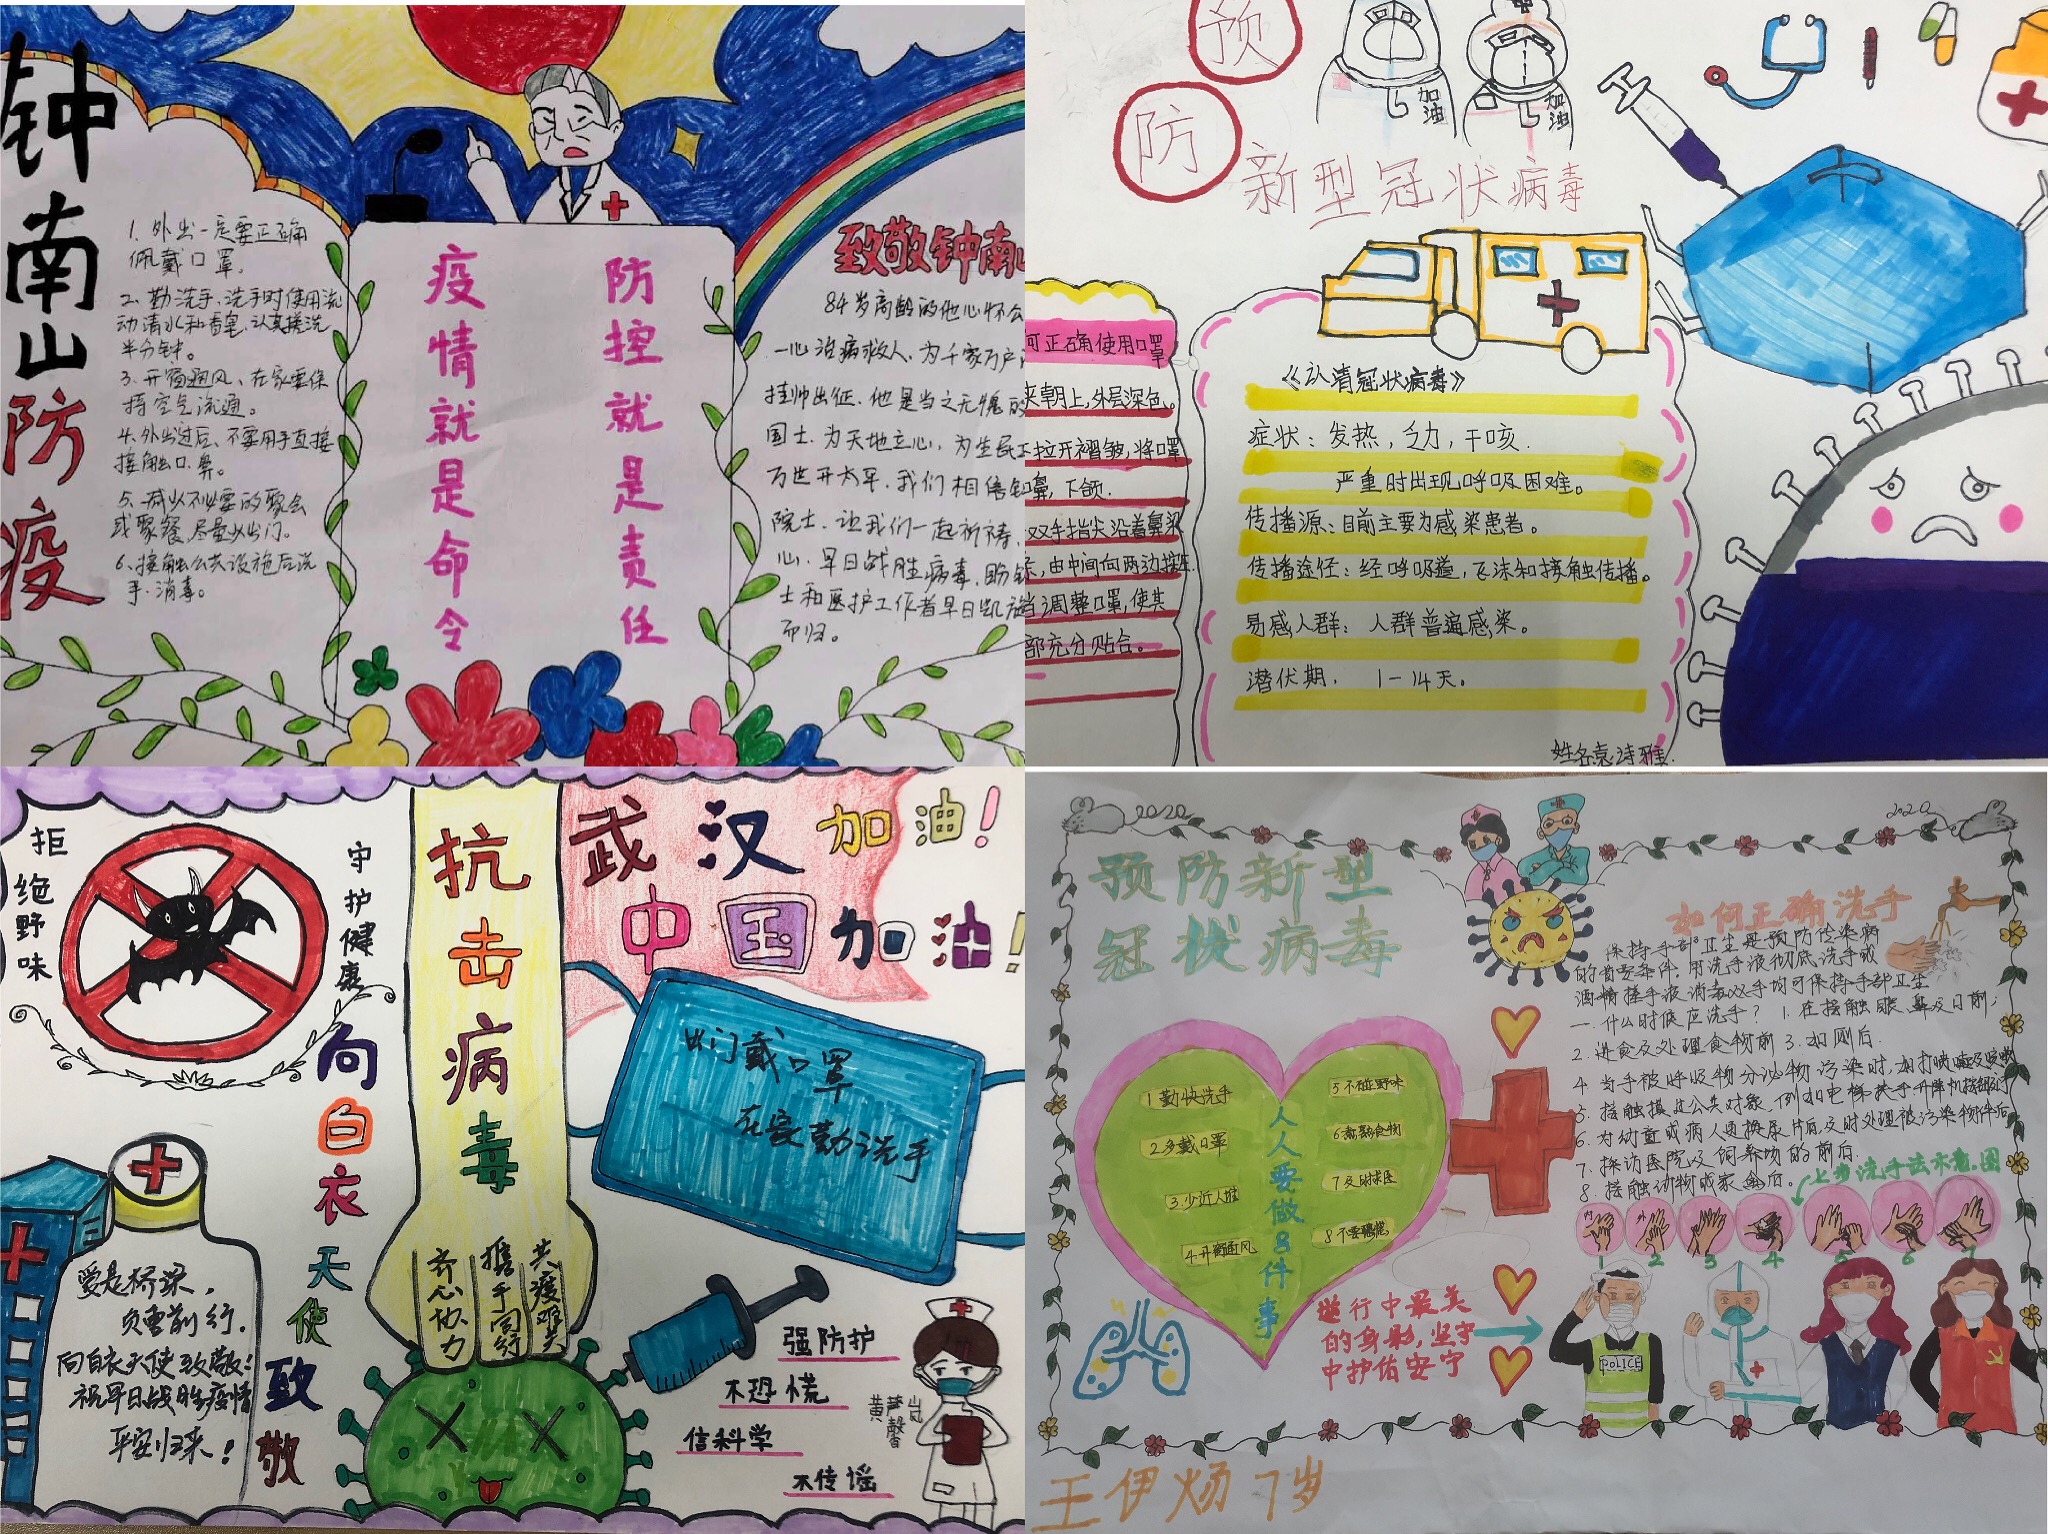 钟南山防疫
1. 外出一定要正确
佩戴口罩。
2. 勤洗手,洗手时使用流
动清水和香皂,认真搓洗
半分钟。
3. 开窗通风、在家要保
持空气流通。
4. 外出过后、不要用手直接
接触口.鼻。
5. 减少不必要的聚会
或聚餐,尽量少出门。
6. 接触公共设施后洗
手.消毒。
疫情就是命令
防控就是责任
致敬钟南山
84岁高龄的他心怀
一心治病救人、为千家万户
挂帅出征.他是当之无愧的
国士.为天地立心,为生民
万世开太平.我们相信钟
院士.让我们一起祈祷.
心、早日战胜病毒.盼
士和医护工作者早日凯旋
而归。
预
防
新型冠状病毒
加油
加油
何正确使用口罩
夹朝上,外层深色。
拉开褶皱,将口罩
鼻,下颌.
双手指尖沿着鼻梁
,由中间向两边按压
当调整口罩,使其
部充分贴合。
《认清冠状病毒》
症状:发热,乏力,干咳.
严重时出现呼吸困难。
传播源:目前主要为感染患者。
传播途径:经呼吸道,飞沫和接触传播。
易感人群: 人群普遍感染。
潜伏期. 1-14天。
姓名袁诗雅.
拒绝野味
守护健康
抗击病毒
武汉加油!
中国加油!
出门戴口罩
在家勤洗手
向白衣天使致敬
爱是桥梁,
负重前行.
向白衣天使致敬!
祝早日战胜疫情
平安归来!
齐心协力
携手同行
共渡难关
强防护
不恐慌
信科学
不传谣
2020
2020
预防新型
冠状病毒
如何正确洗手
保持手部卫生是预防传染病
的首要条件.用洗手液彻底洗手或
酒精搓手液消毒双手均可保持手部卫生
一.什么时候应洗手? 1. 在接触眼、鼻及口前;
2. 进食及处理食物前 3. 如厕后.
4 当手被呼吸物分泌物污染时,如打喷嚏及咳嗽
5. 接触摸过公共对象,例如电梯扶手升降机按钮
6. 为幼童或病人更换尿片后,及时处理被污染物件后
7. 探访医院及饲养场的前后.
8. 接触动物或家禽后。
七步洗手法示意图
内
外
1 2 3 4 5 6 7
人人要做8件事
1 勤快洗手
2 多戴口罩
3. 少近人堆
4. 开窗通风
5 不碰野味
6 煮熟食物
7 及时求医
8 不要恐慌
逆行中最美
的身影,坚守
中护佑安宁
POLICE
王伊炀7岁